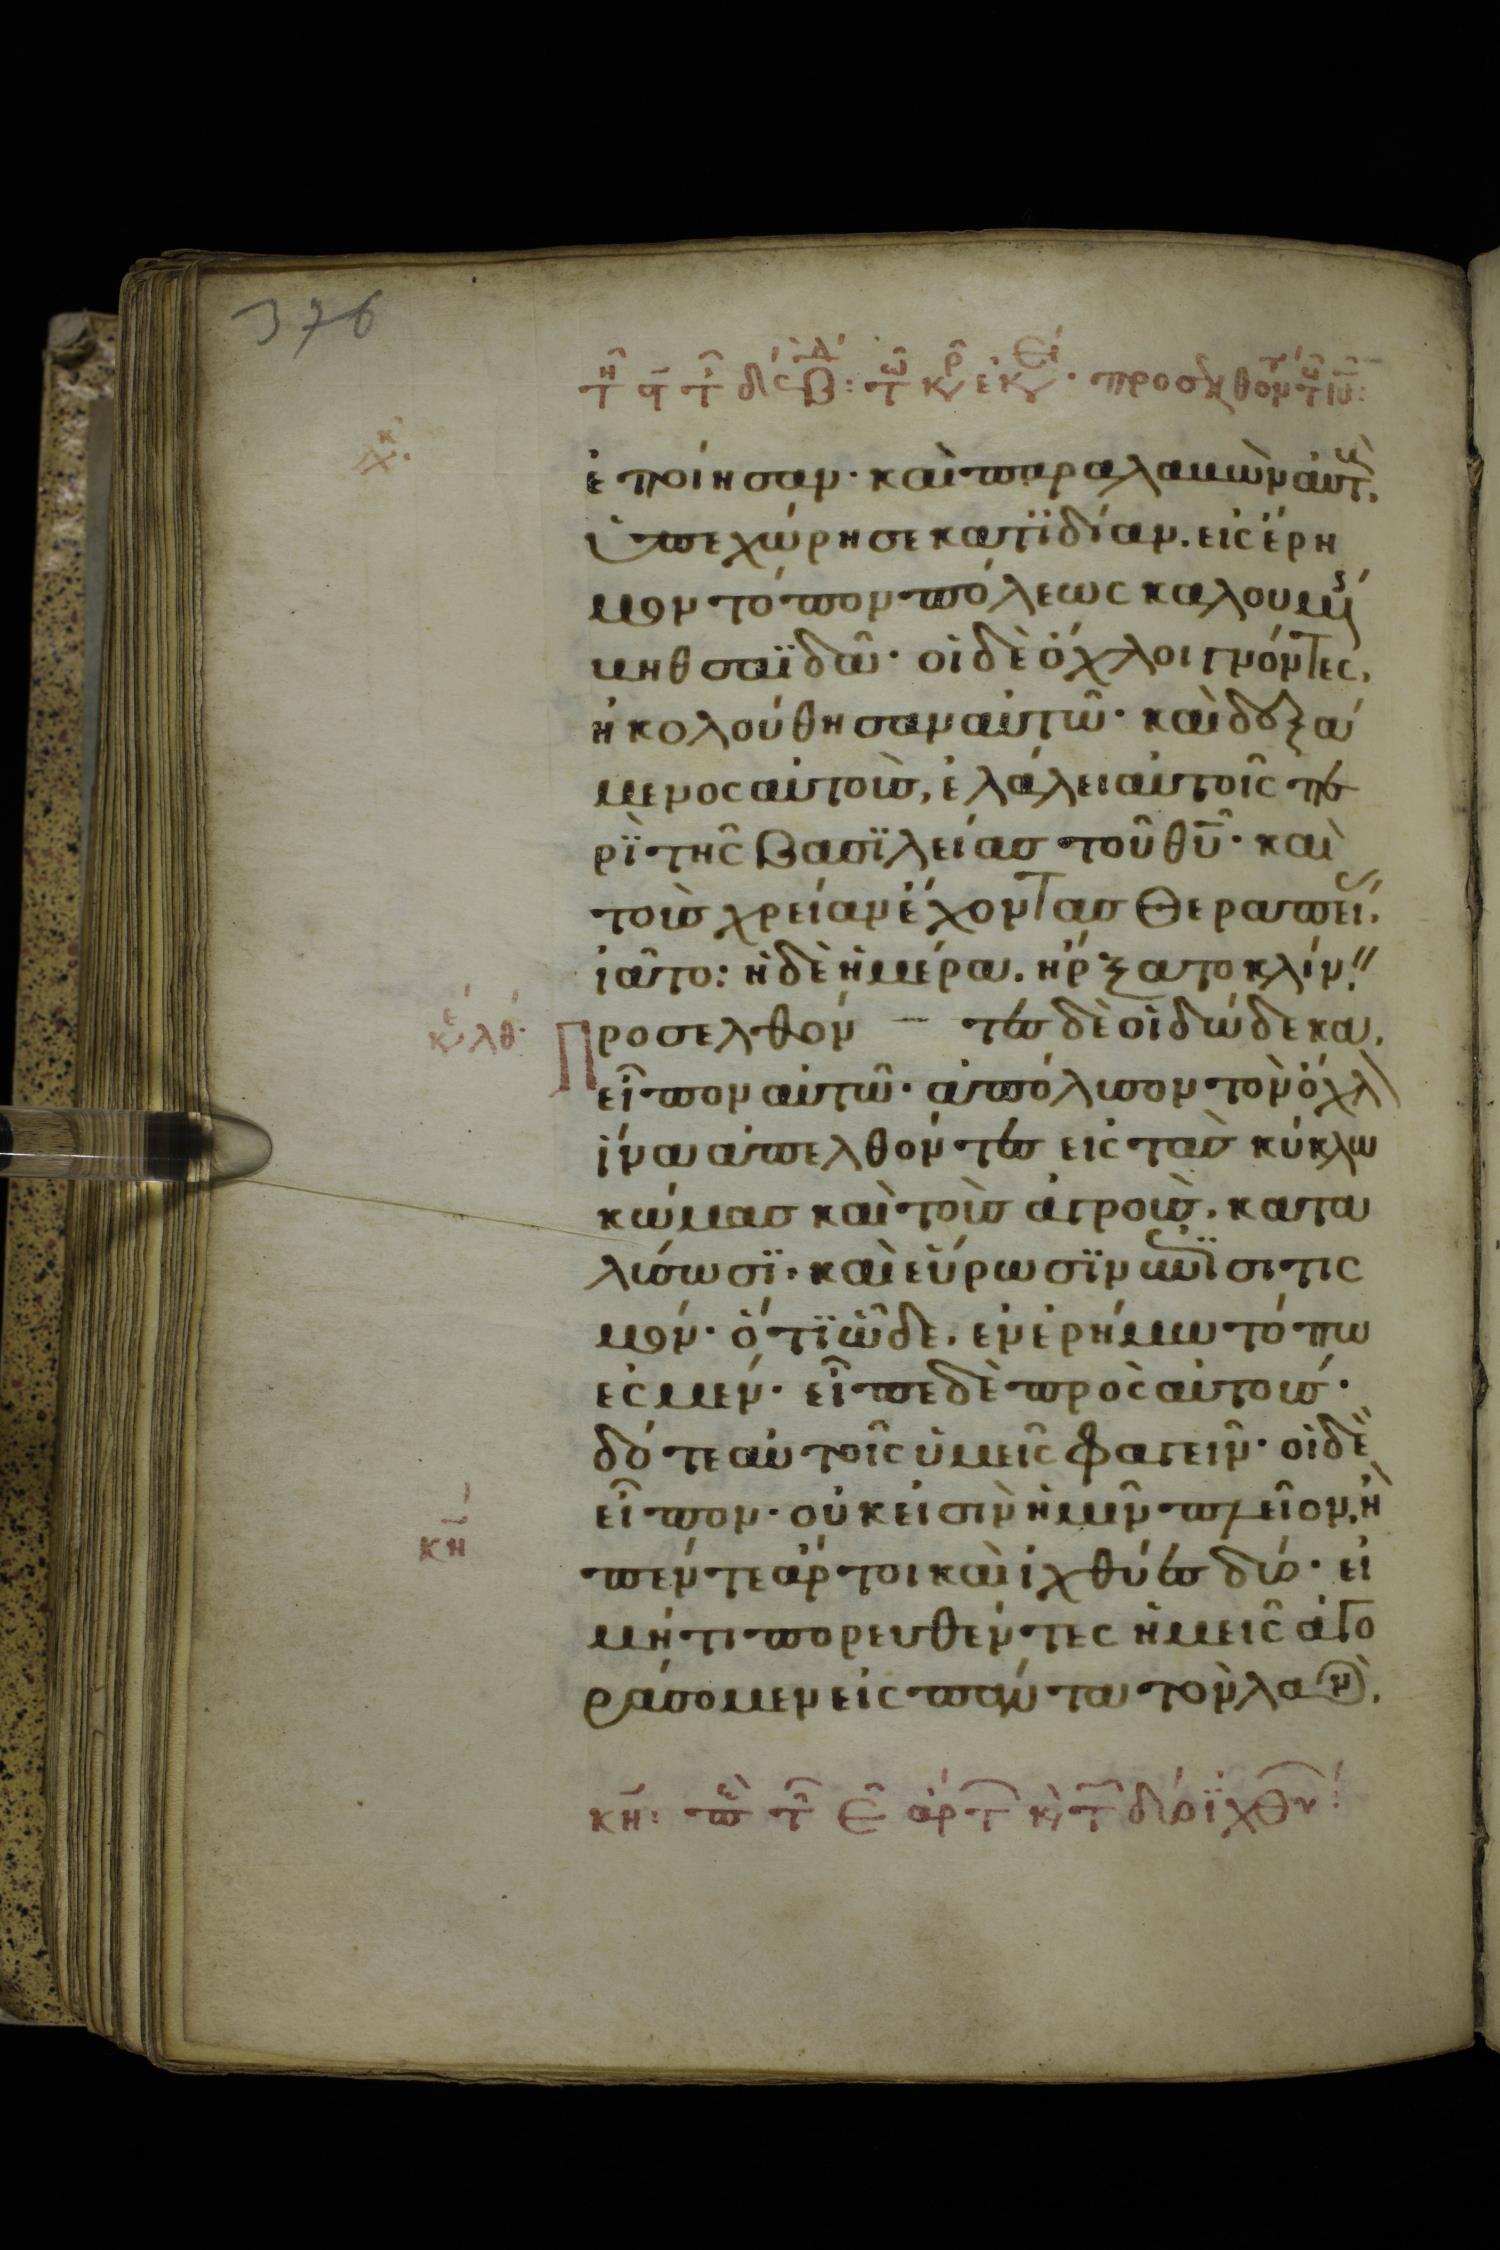 376
ἐποίησαν· καὶ παραλαβὼν αὐτ,
ὑπεχώρησε κατϊδίαν. εἰς ἔρη
μον τόπον πόλεως καλουμ
βηθσαϊδὰ· οἱ δὲ ὄχλοι γνόντες,
ἠκολούθησαν αὐτῶ· καὶ δεξά
μενος αὐτοὺς, ἐλάλει αὐτοῖς πε
ρὶ τῆς βασϊλείας τοῦ θῦ· καὶ
τοὺς χρείαν ἔχοντας θεραπεί.
ἰᾶτο: ἡ δὲ ἡμέρα. ἤρξατο κλίν
κε λθ
Προσελθόν – τες δὲ οἱ δώδεκα,
εἶπον αὐτῶ· ἀπόλυσον τὸν ὄχλ
ἵνα ἀπελθόντες εἰς τὰς κύκλω
κώμας καὶ τοὺς ἀγροὺς, κατα
λύσωσϊ· καὶ εὕρωσϊν ἐπισιτις
μόν· ὅτϊ ὧδε, ἐν ἐρήμω τόπω
ἐσμέν· εἶπε δὲ πρὸς αὐτούς·
δότε αὐτοῖς ὑμεῖς φαγεῖν· οἱ δὲ
εἶπον· οὐκ εἰσὶν ἡμῖν πλεῖον, ἢ
κη
πέντε ἄρτοι καὶ ἰχθύες δύο· εἰ
μήτι πορευθέντες ἡμεῖς ἀγο
ράσομεν εἰς πάντα τὸν λαὸν,
κη: πε τ ε ἄρτ κ τ δύο ἰχθυ